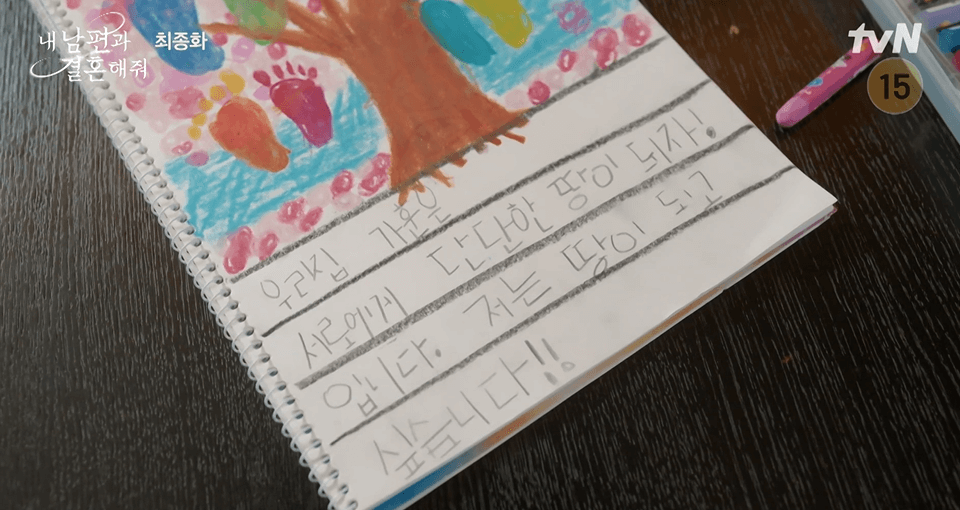 내 남편과
결혼해줘
최종화
tvN
15
우리집 가훈은
서로에게 단단한 땅이 되자!
입니다. 저는 땅이 되고
싶슴니다!!